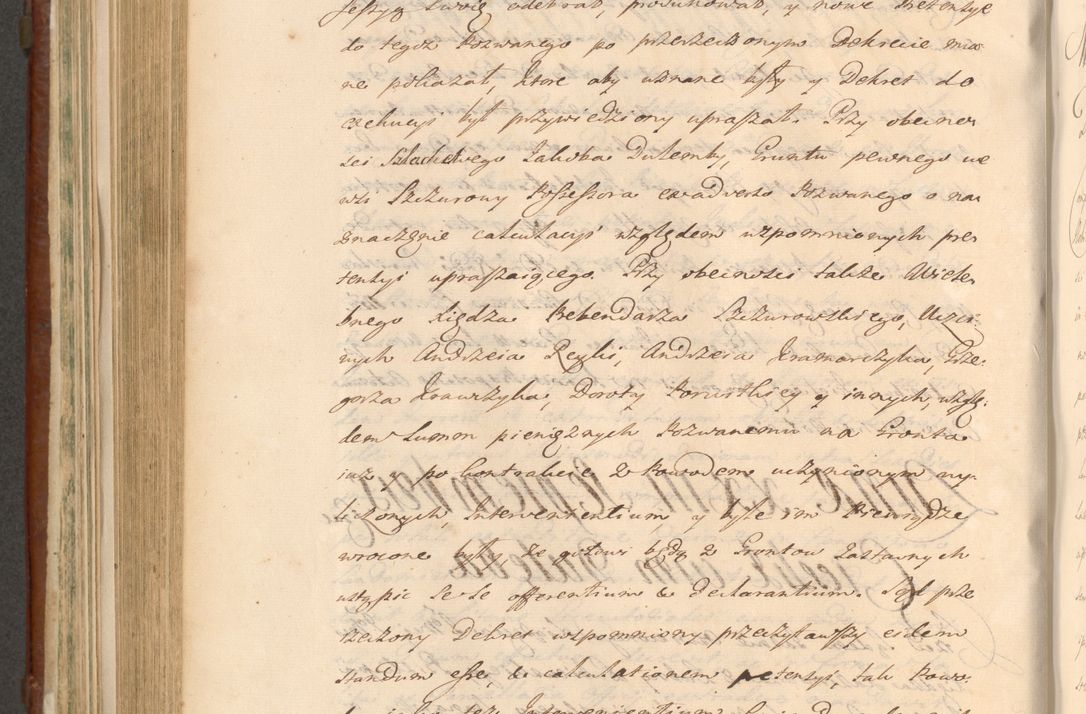 Jeszyę Swoię odebrał, produkował, y nowe Pretensye
do tegoż Pozwanego po przerzeczonym Dekrecie mia-
ne pokazał, ktore aby uznane były y Dekret do
exekucyi był przywiedziony upraszał. Przy obecno-
ści Szlachetnego Jakuba Dulemby, Gruntu pewnego we
wsi Szczurowy Possessora ex adverso Pozwanego o na-
znaczenie calculacyi względem wspomnionych pre-
tensyi upraszaiącego. Przy obecności także Wiele-
bnego Xiędza Prebendarza Szczurowskiego, Uczci-
wych Andrzeia Reyli, Andrzeia Kramarczyka, Grze-
gorza Krawczyka, Doroty y innych, wzglę-
dem Summ pieniężnych Pozwanemu na Gronta
iuż po kontrakcie z Powodem uczynionym wy-
liczonych, Intervenientium y byle im Pieniądze
wrocone były że gotowi będą z Grontow Zastawnych
ustąpic se se offerentium & declarantium. Sąd prze
rzeczony Dekret wspomniony przeczytawszy eidem
standum esse, & calculationem pretensyi, tak Powo-